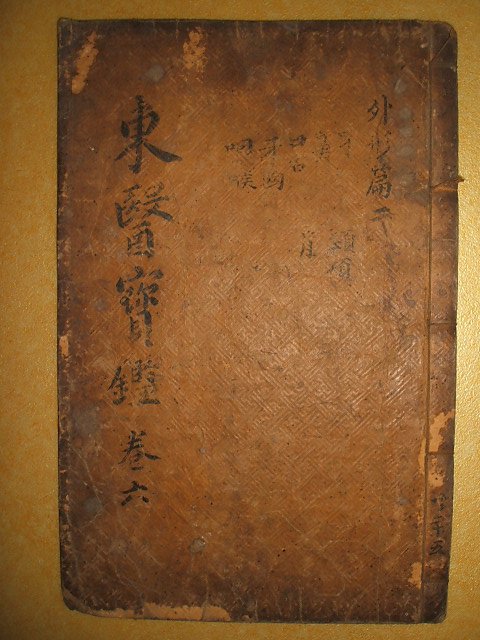 外形篇二
耳 頸項
鼻 背
口舌
牙齒
咽喉
東醫寶鑑 卷六